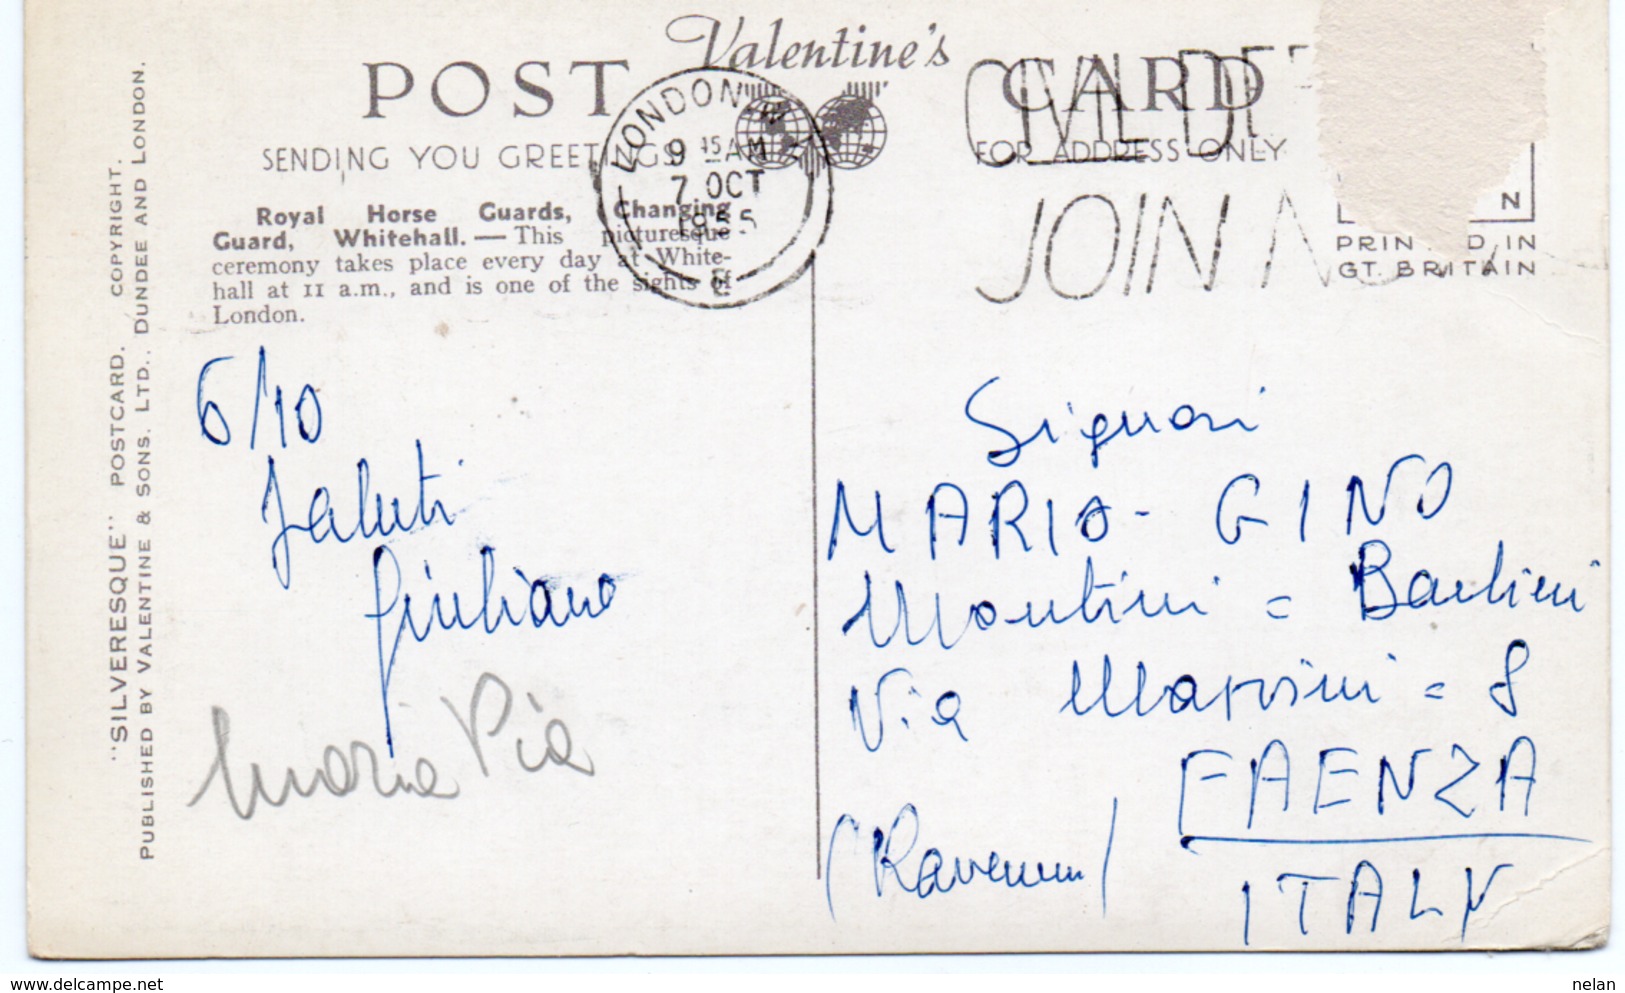 Valentine's
POST CARD
SENDING YOU GREETINGS
FOR ADDRESS ONLY
LONDON.W.1
9 15 AM
7 OCT
1955
E
CIVIL DEF
JOIN NO
N
PRINTED IN
GT. BRITAIN
Royal Horse Guards, Changing
Guard, Whitehall. — This picturesque
ceremony takes place every day at White-
hall at 11 a.m., and is one of the sights of
London.
"SILVERESQUE" POSTCARD. COPYRIGHT.
PUBLISHED BY VALENTINE & SONS. LTD., DUNDEE AND LONDON.
6/10
Saluti
Giuliano
Maria Pia
Signori
MARIO - GINO
Montini = Bartini
Via = 8
FAENZA
(Ravenna)
ITALY
www.delcampe.net
nelan